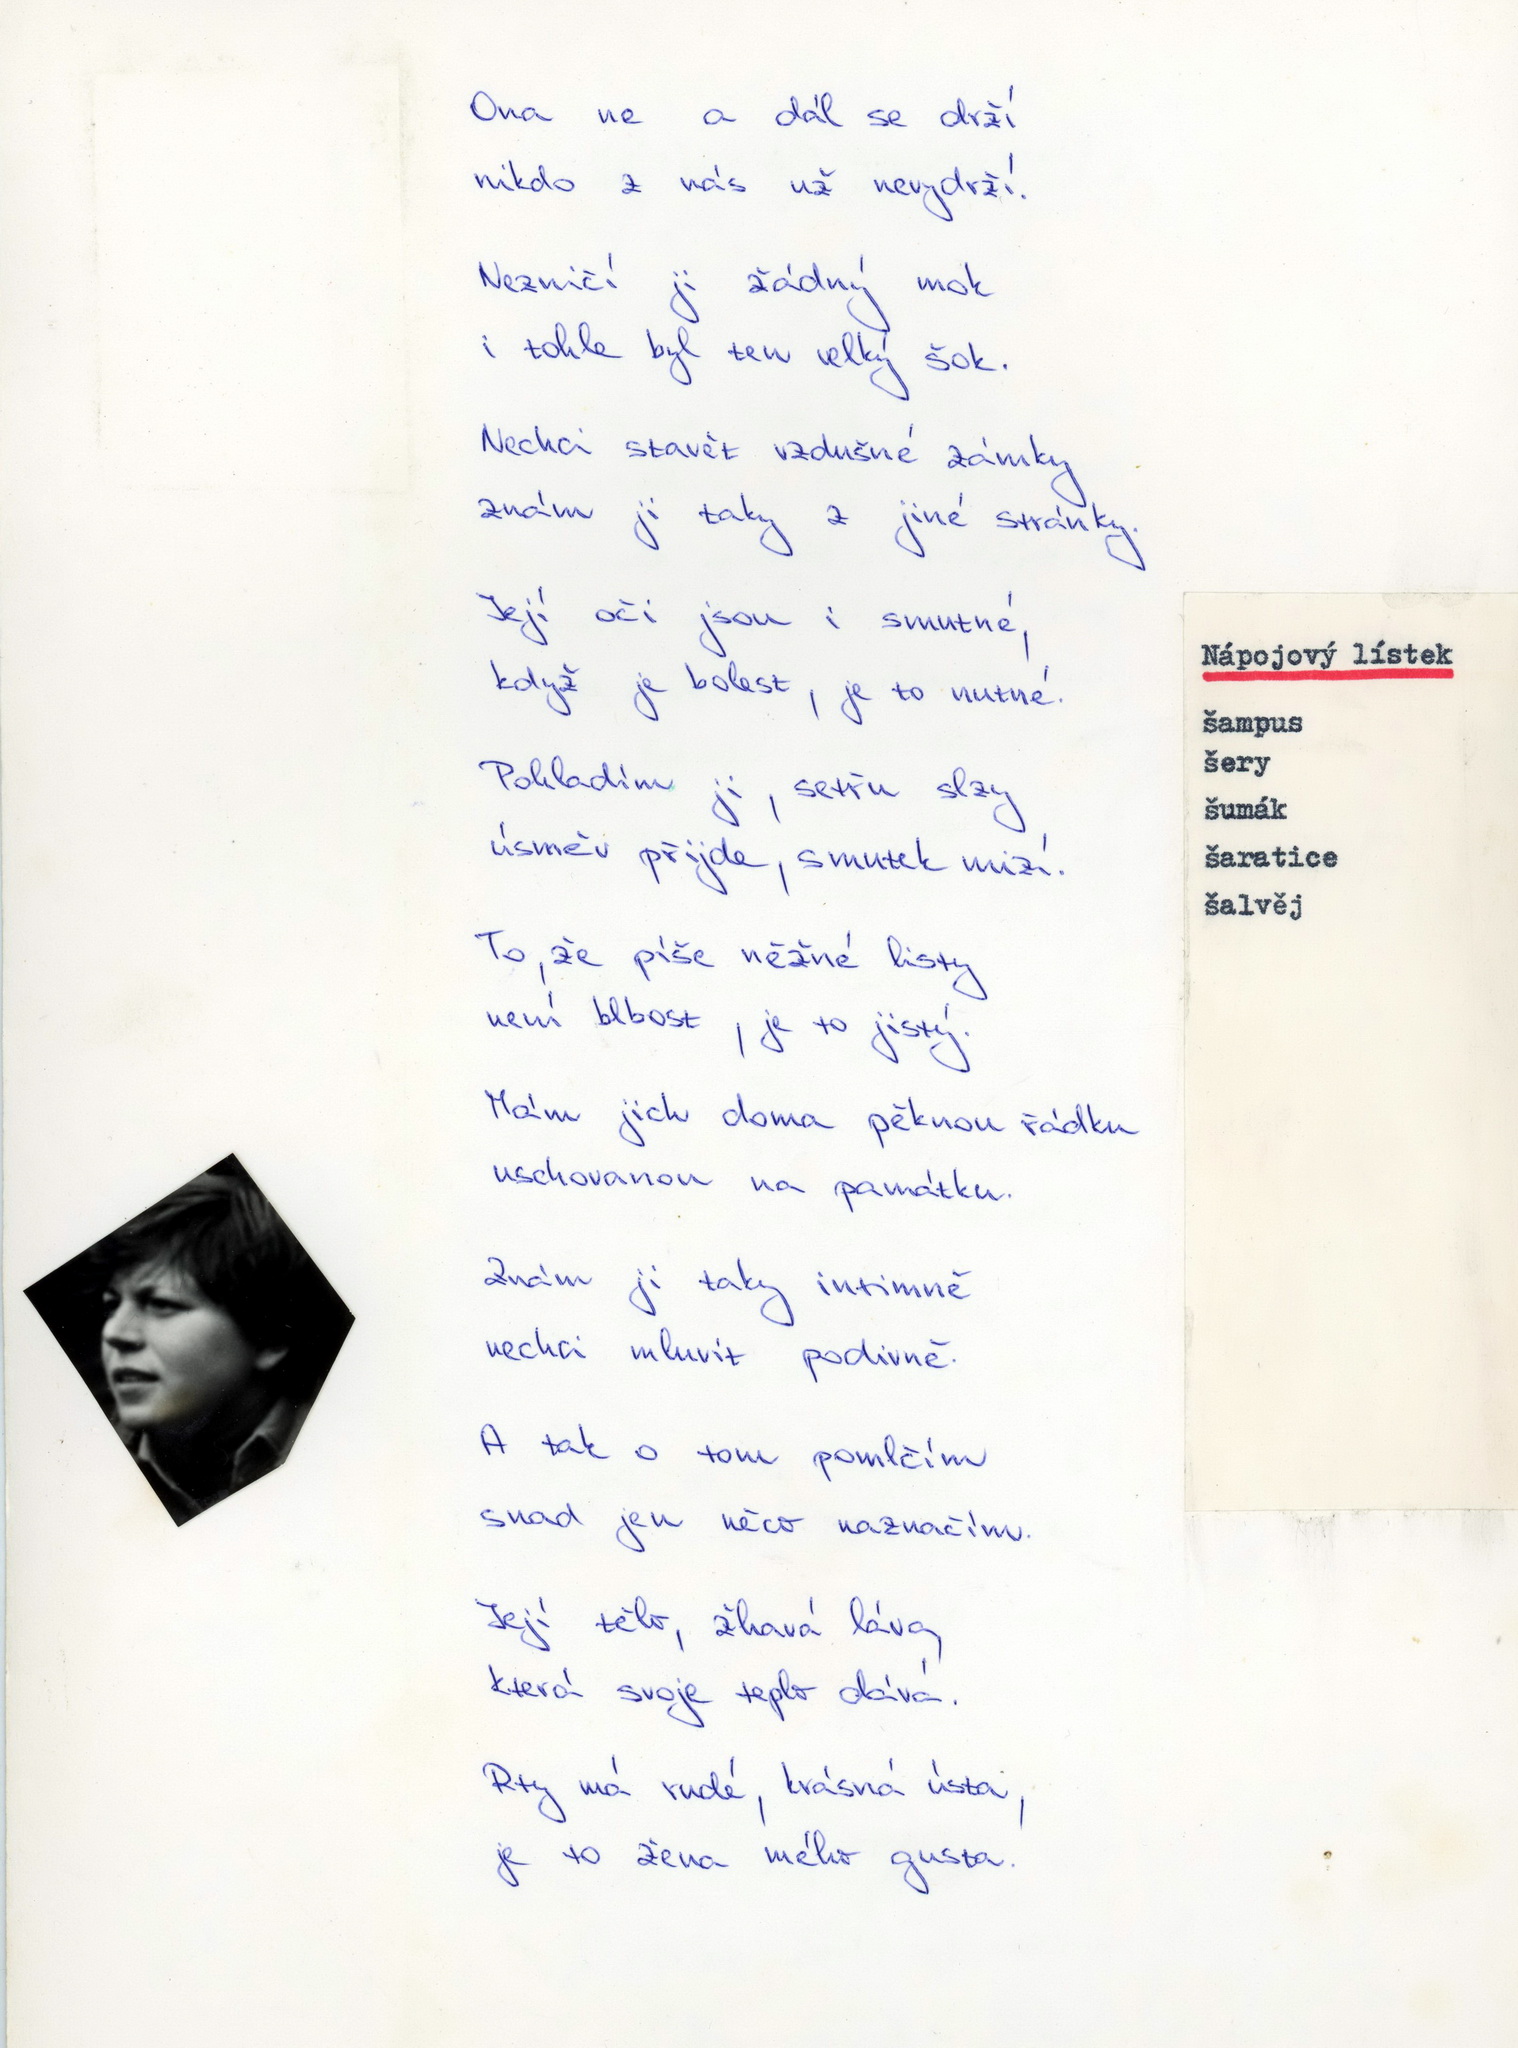 Ona ne a dál se drží
nikdo z nás už nevydrží.
Nezničí ji žádný mok
i tohle byl ten velký šok.
Nechci stavět vzdušné zámky
znám ji taky z jiné stránky.
Její oči jsou i smutné,
když je bolest, je to nutné.
Pohladím ji, setřu slzy
úsměv přijde, smutek mizí.
To, že píše něžné listy
není blbost, je to jistý.
Mám jich doma pěknou řádku
uschovanou na památku.
Znám ji taky intimně
nechci mluvit podivně.
A tak o tom pomlčím
snad jen něco naznačím.
Její tělo, žhavá láva,
která svoje teplo dává.
Rty má rudé, krásná ústa,
je to žena mého gusta.
Nápojový lístek
šampus
šery
šumák
šaratice
šalvěj